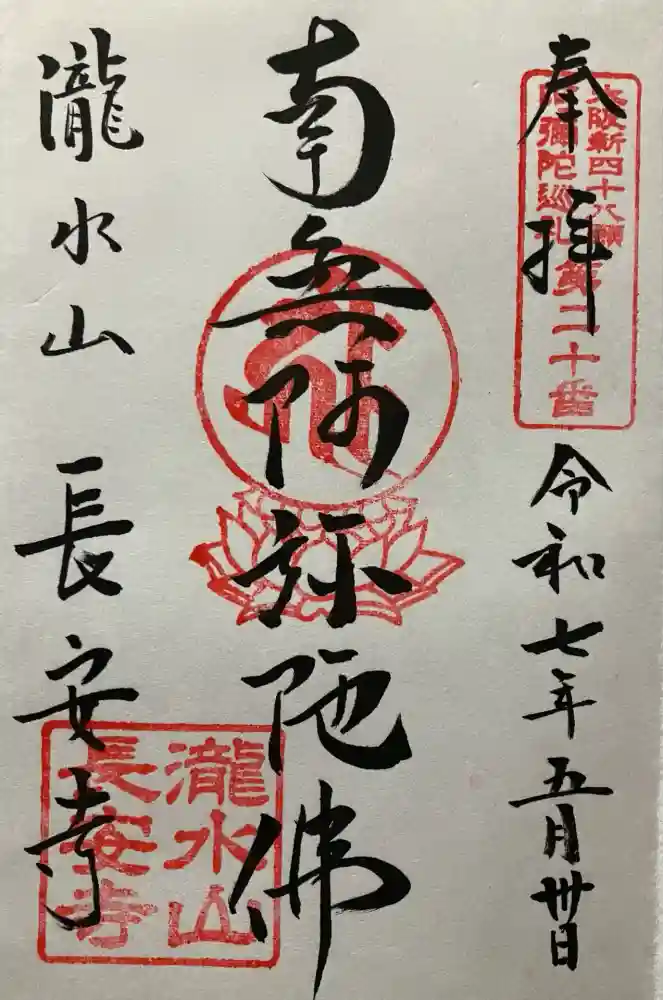 奉拝
大阪新四十八願
阿彌陀巡礼第二十番
令和七年五月卅日
南無阿弥陀佛
瀧水山長安寺
瀧水山
長安寺